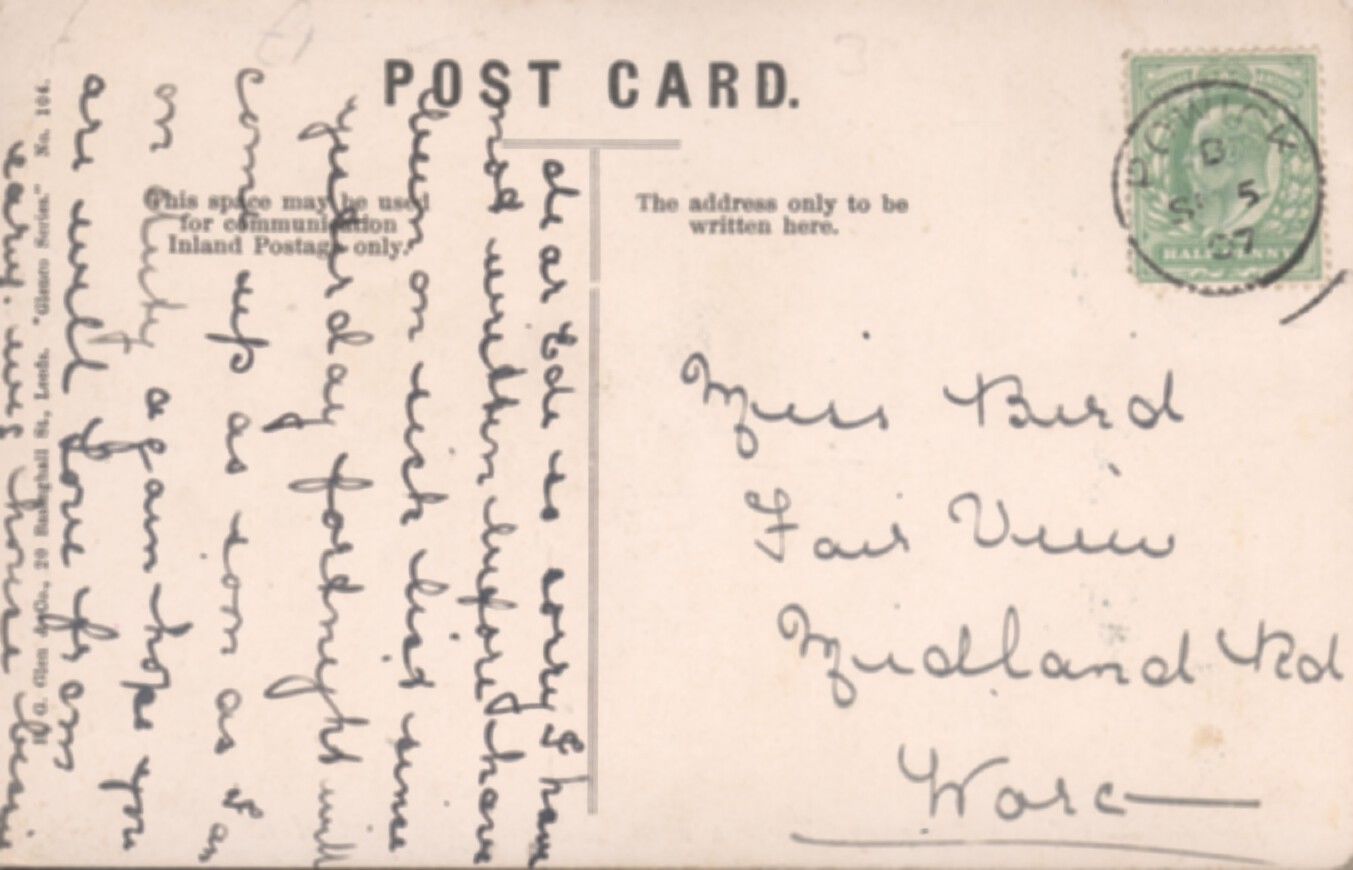 POST CARD.
This space may be used
for communication
Inland Postage only.
The address only to be
written here.
POWICK
5
07
HALFPENNY
Miss Bird
Fair View
Midland Rd
Worc
dear Ede so sorry I have
not written before have
been on sick list since
yesterday fortnight will
come up as soon as I am
on duty again hope you
are well love from
H. G. Glen & Co., 20 Basinghall St., Leeds. "Glenco Series." No. 104.